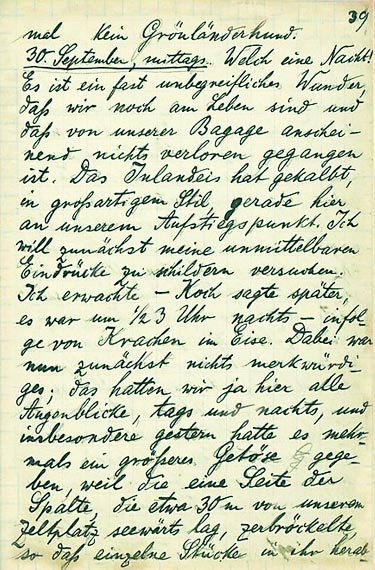 39
mal kein Grönländerhund.
30. September, mittags. Welch eine Nacht!
Es ist ein fast unbegreifliches Wunder,
daß wir noch am Leben sind und
daß von unserer Bagage anschei-
nend nichts verloren gegangen
ist. Das Inlandeis hat gekalbt,
in großartigem Stil, gerade hier
an unserem Aufstiegspunkt. Ich
will zunächst meine unmittelbaren
Eindrücke zu schildern versuchen.
Ich erwachte – Koch sagte später,
es war um 1/2 3 Uhr nachts – infol-
ge von Krachen im Eise. Dabei war
nun zunächst nichts merkwürdi-
ges; das hatten wir ja hier alle
Augenblicke, tags und nachts, und
insbesondere gestern hatte es mehr-
mals ein größeres Getöse gege-
ben, weil die eine Seite der
Spalte, die etwa 30 m von unserem
Zeltplatz seewärts lag, zerbröckelte,
so daß einzelne Stücke in ihr herab-